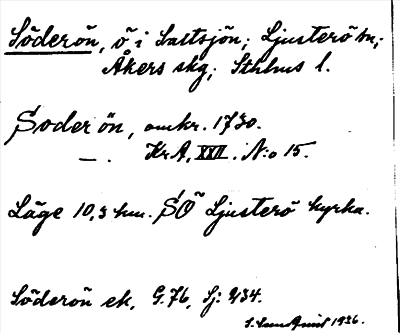 Söderön, ö i Saltsjön; Ljusterö sn;
Åkers skg; Sthlms l.
Soder ön, omkr. 1730.
— . Kr.A, XXII. N:o 15.
Läge 10,3 km. SÖ Ljusterö kyrka.
Söderön ek, G.76, Sj: 234.
1936.